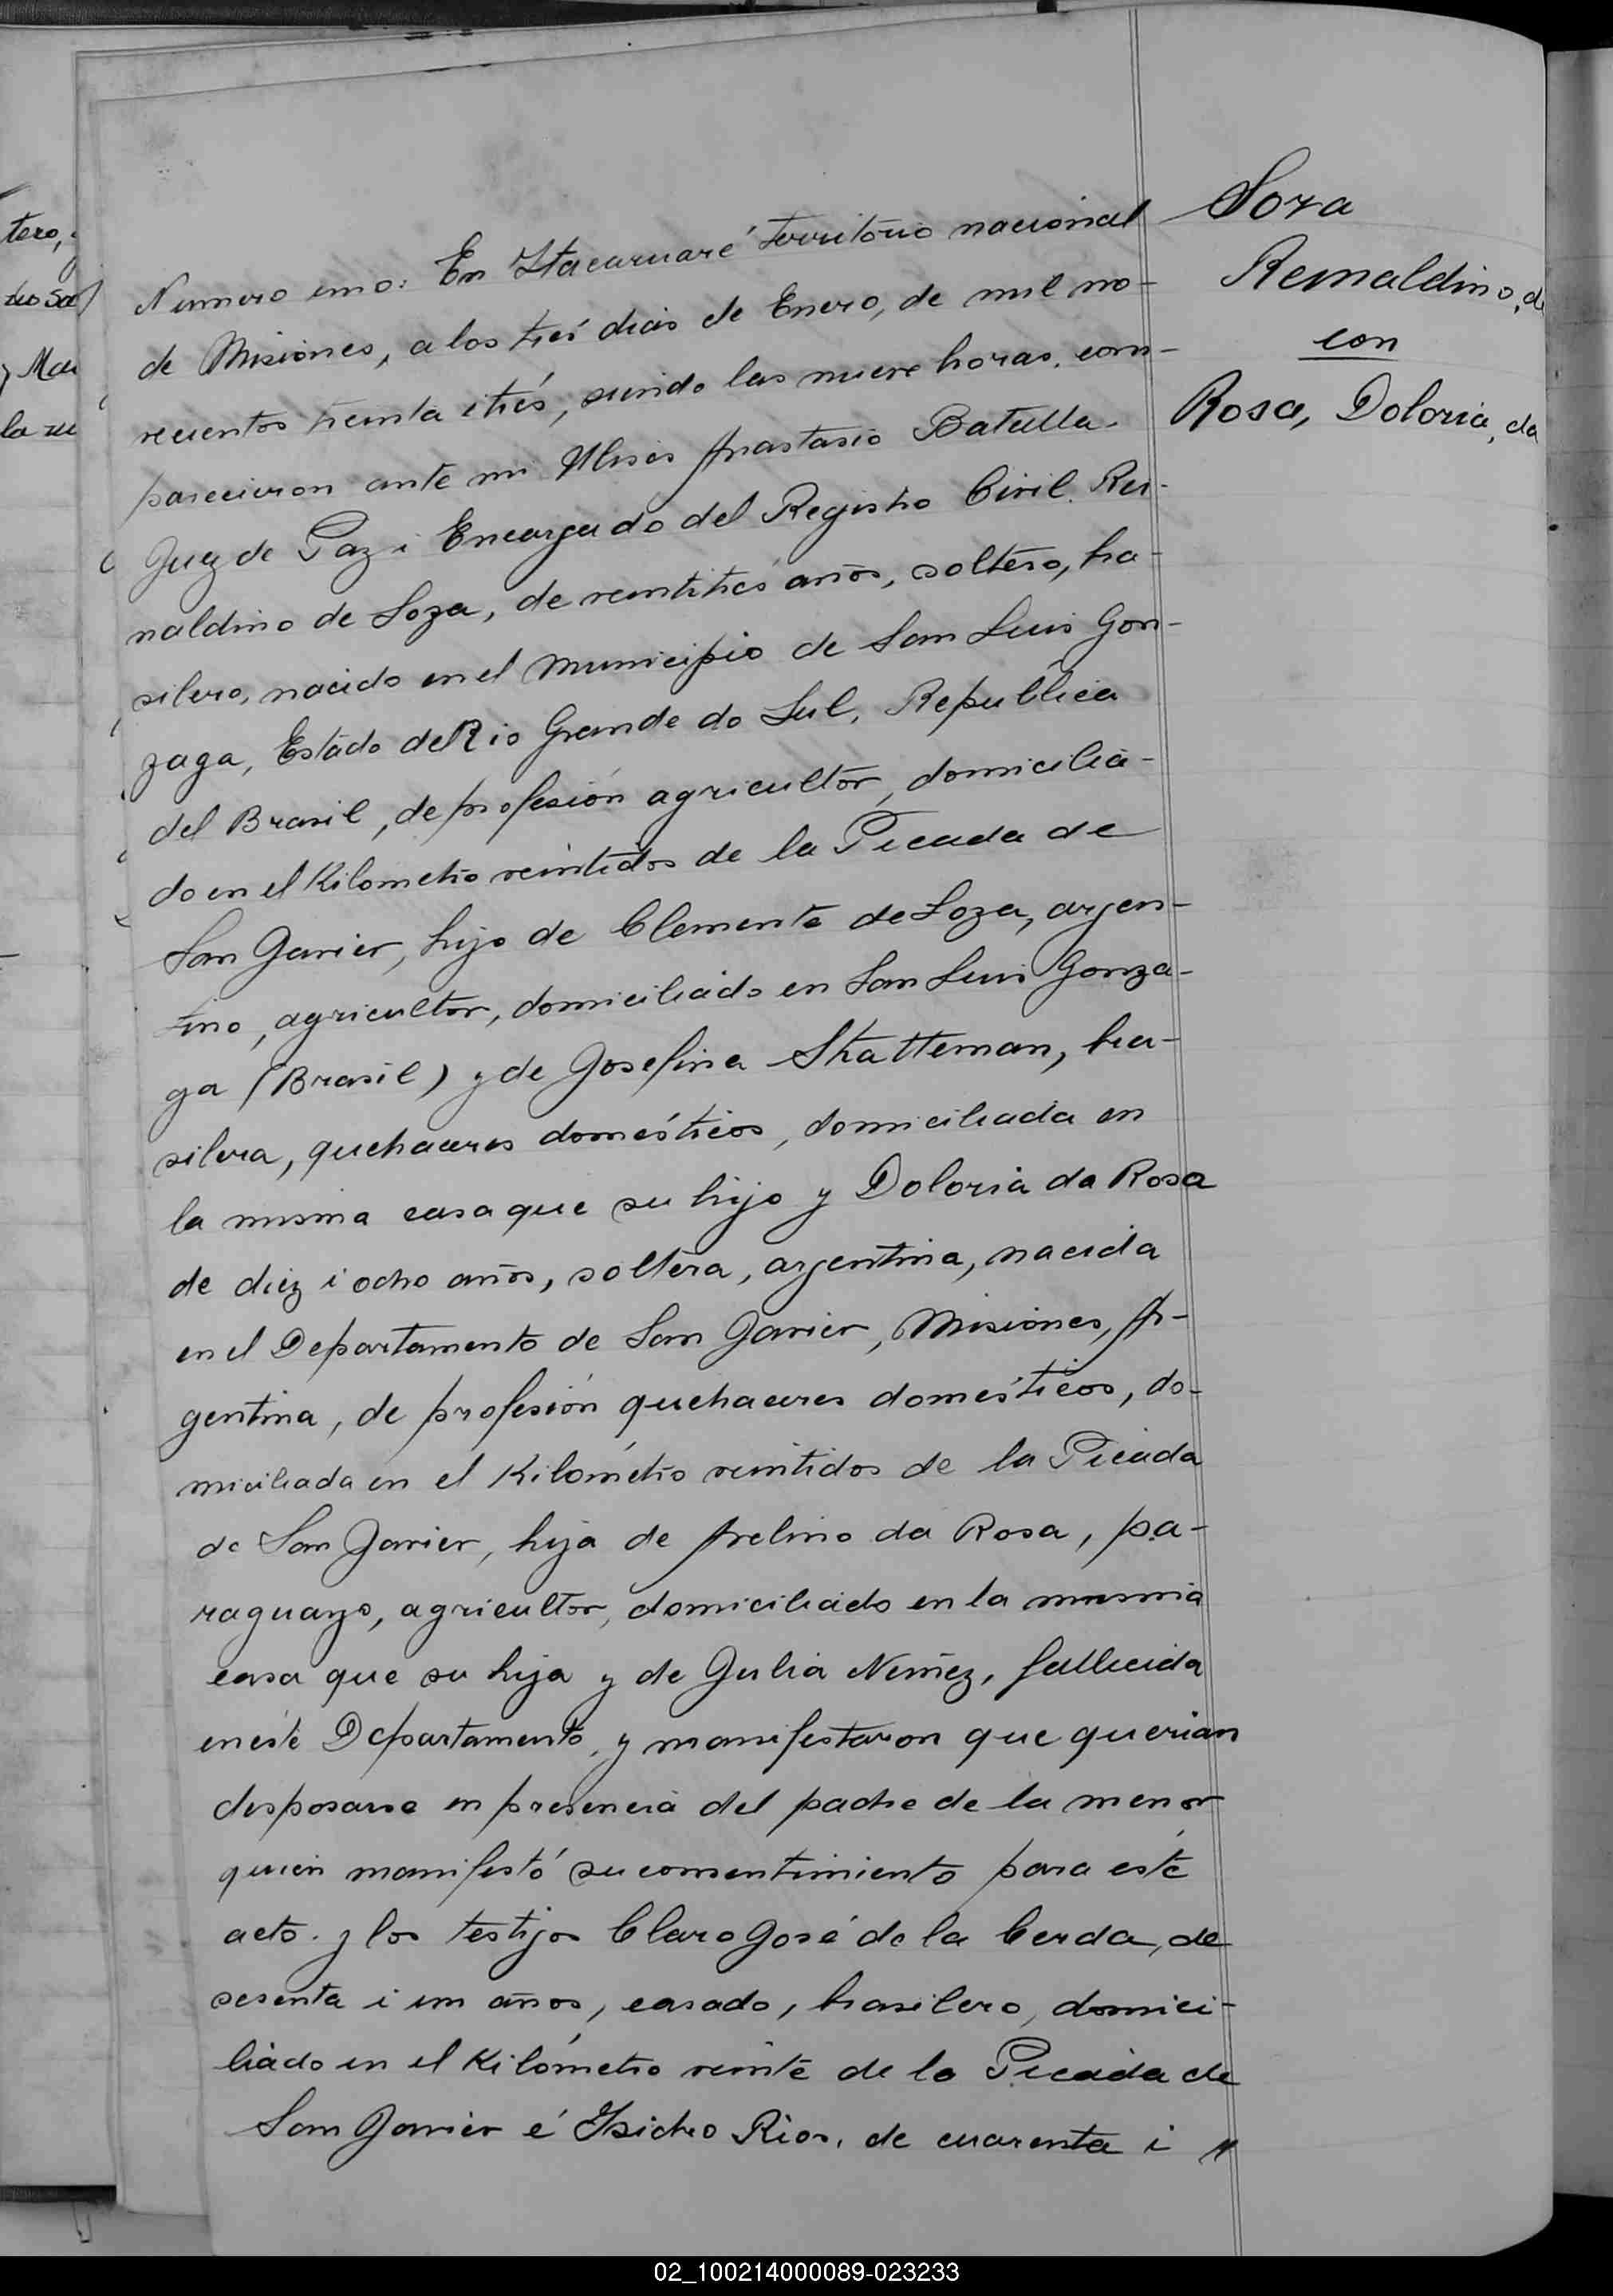 Soza
Reinaldino, de
con
Rosa, Doloria, da
Numero uno: En Itacaruaré Territorio nacional
de Misiones, a los tres dias de Enero, de mil no-
vecientos treinta i trés, siendo las nueve horas, com-
parecieron ante mi Ulises Anastasio Batulla
Juez de Paz i Encargado del Registro Civil. Rei-
naldino de Soza, de veintitrés años, soltero, bra-
silero, nacido en el Municipio de San Luis Gon-
zaga, Estado del Rio Grande do Sul, Republica
del Brasil, de profesión agricultor, domicilia-
do en el Kilometro veintidos de la Picada de
San Javier, hijo de Clemente de Soza, argen-
tino, agricultor, domiciliado en San Luis Gonza-
ga (Brasil) y de Josefina Statteman, bra-
silera, quehaceres domésticos, domiciliada en
la misma casa que su hijo y Doloria da Rosa
de diez i ocho años, soltera, argentina, nacida
en el Departamento de San Javier, Misiones, Ar-
gentina, de profesión quehaceres domésticos, do-
miciliada en el Kilómetro veintidos de la Picada
de San Javier, hija de Avelino da Rosa, pa-
raguayo, agricultor, domiciliado en la misma
casa que su hija y de Julia Nuñez, fallecida
en éste Departamento, y manifestaron que querian
desposarse en presencia del padre de la menor
quien manifestó su consentimiento para éste
acto. y los testijos Claro José de la Cerda, de
sesenta i un años, casado, brasilero, domici-
liado en el Kilómetro veinte de la Picada de
San Javier é Isidro Rios, de cuarenta i
tero,
la
02_100214000089-023233